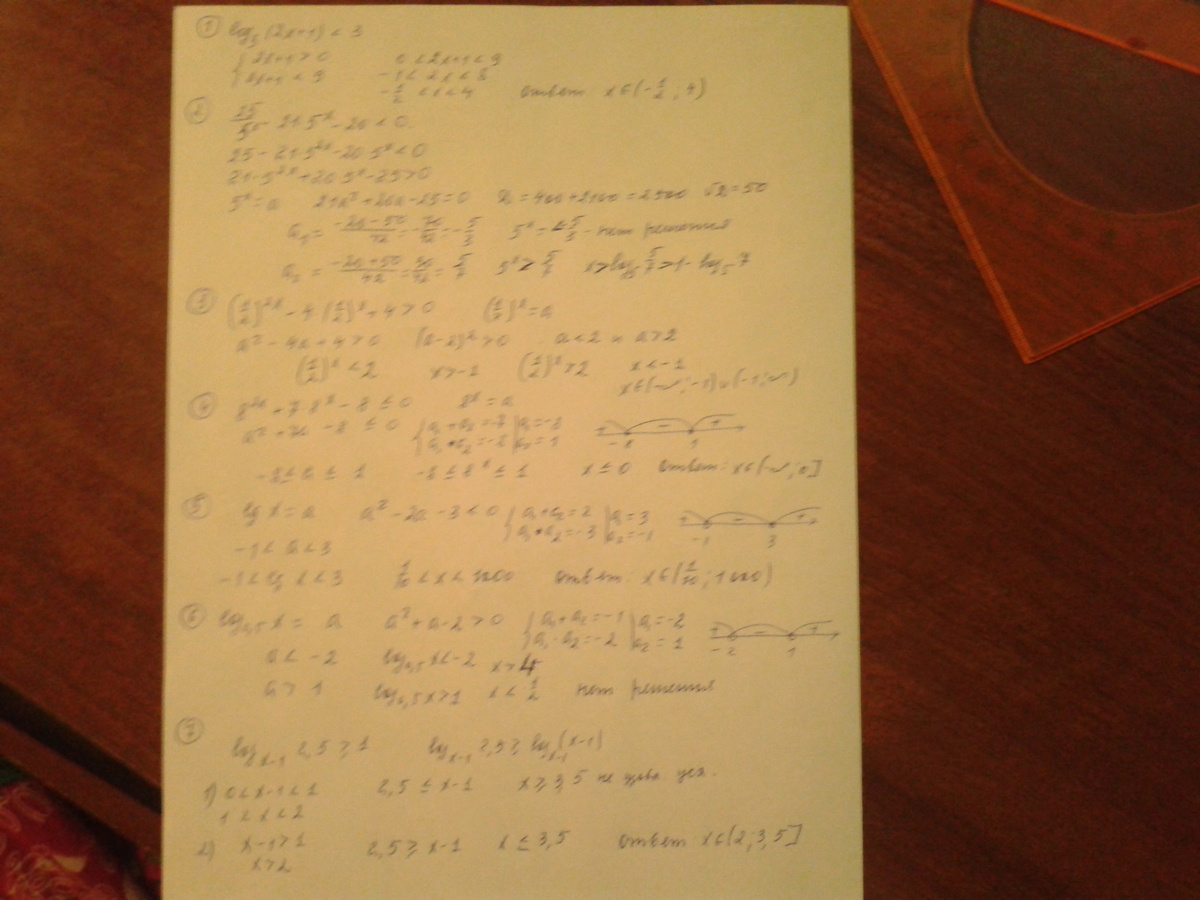 ① log₃(2x+1) < 3
{ 2x+1 > 0    0 < 2x+1 < 9
{ 2x+1 < 9    -1 < 2x < 8
-1/2 < x < 4    ответ x∈(-1/2; 4)
② 25/5ˣ - 21·5ˣ - 20 < 0
25 - 21·5²ˣ - 20·5ˣ < 0
21·5²ˣ + 20·5ˣ - 25 > 0
5ˣ = a    21a² + 20a - 25 = 0    D = 400 + 2100 = 2500    √D = 50
a₁ = (-20-50)/42 = -70/42 = -5/3    5ˣ = -5/3 - нет решения
a₂ = (-20+50)/42 = 30/42 = 5/7    5ˣ > 5/7    x > log₅ 5/7 > 1 - log₅ 7
③ (1/2)²ˣ - 4(1/2)ˣ + 4 > 0    (1/2)ˣ = a
a² - 4a + 4 > 0    (a-2)² > 0    a < 2 и a > 2
(1/2)ˣ < 2    x > -1    (1/2)ˣ > 2    x < -1
x∈(-∞; -1)∪(-1; ∞)
④ 8²ˣ + 7·8ˣ - 8 ≤ 0    8ˣ = a
a² + 7a - 8 ≤ 0    { a₁ + a₂ = -7 | a₁ = -8    + - +
{ a₁ • a₂ = -8 | a₂ = 1    -8 1
-8 ≤ a ≤ 1    -8 ≤ 8ˣ ≤ 1    x ≤ 0    ответ: x∈(-∞; 0]
⑤ lg x = a    a² - 2a - 3 < 0    { a₁ + a₂ = 2 | a₁ = 3    + - +
{ a₁ • a₂ = -3 | a₂ = -1    -1 3
-1 < a < 3
-1 < lg x < 3    1/10 < x < 1000    ответ: x∈(1/10; 1000)
⑥ log₀,₅ x = a    a² + a - 2 > 0    { a₁ + a₂ = -1 | a₁ = -2    + - +
{ a₁ · a₂ = -2 | a₂ = 1    -2 1
a < -2    log₀,₅ x < -2    x > 4
a > 1    log₀,₅ x > 1    x < 1/2    нет решения
⑦
logₓ₋₁ 2,5 ≥ 1    logₓ₋₁ 2,5 ≥ logₓ₋₁(x-1)
1) 0 < x-1 < 1    2,5 ≤ x-1    x ≥ 3,5 не удов. усл.
1 < x < 2
2) x-1 > 1    2,5 ≥ x-1    x ≤ 3,5    ответ x∈(2; 3,5]
x > 2